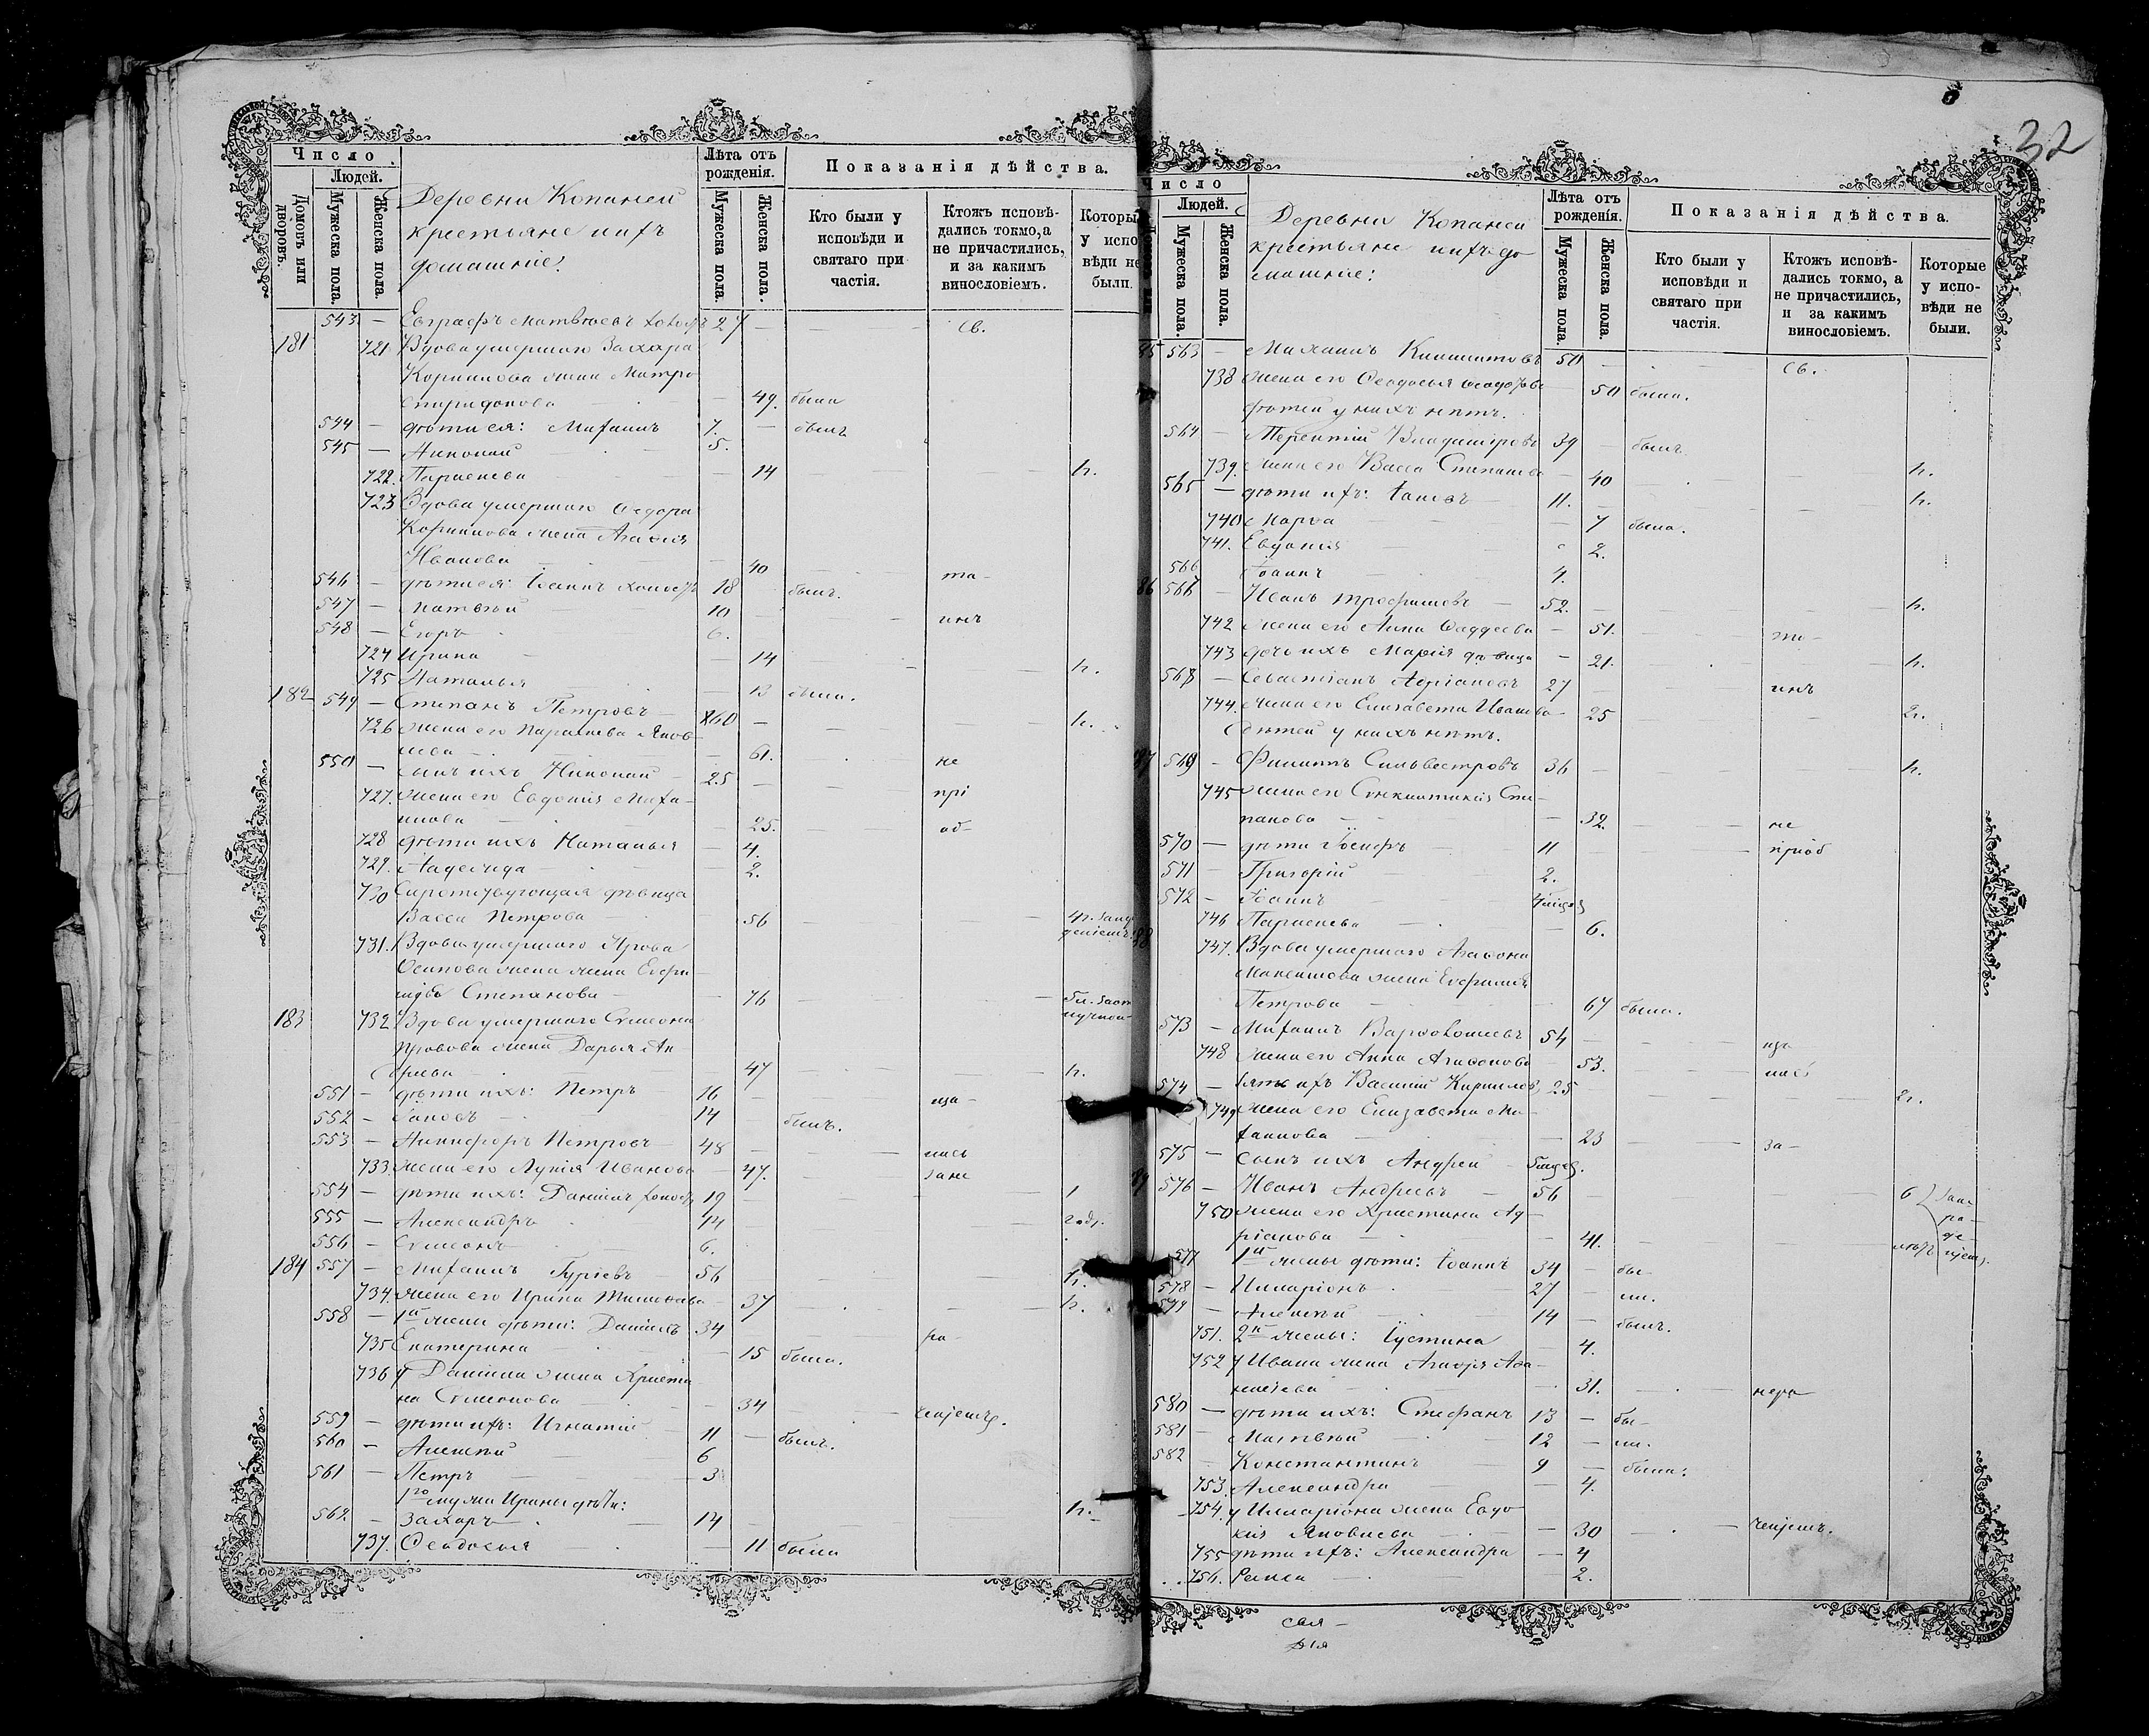 Число
Людей.
Домовъ или дворовъ.
Мужеска пола.
Женска пола.
Деревни Копаней
крестьяне и ихъ
домашніе:
Лѣта отъ рожденія.
Мужеска пола.
Женска пола.
Показанія дѣйства.
Кто были у исповѣди и святаго причастія.
Ктожъ исповѣдались токмо, а не причастились, и за какимъ винословіемъ.
Которые у исповѣди не были.
543 — Евграфъ Матвѣевъ 27 — — св.
181 721 Вдова умершаго Захара
Кориннова жена Матро
Спиридонова — 49. была
544 — дѣти ея: Михаилъ 7. — былъ
545 — Николай 5.
722. Параскева — 14 — н.
723 Вдова умершаго Ѳедора
Кориннова жена Агаѳія
Иванова — 40 — та-
546 — дѣти ея: Іоаннъ холостъ 18 былъ.
547 — Матвѣй 10 — инъ
548 — Егоръ 6.
724 Ирина — 14 — н.
725 Наталья — 13 была.
182 549 — Степанъ Петровъ — 60 — н.
726 жена его Параскева Яков-
лева — 61. не
550 — сынъ ихъ Николай — 25 — прі
727. жена его Евдокія Миха-
илова — 25. об-
728 дѣти ихъ Наталья — 4.
729. Надежда — 2.
730 Сиротствующая дѣвица
Васса Петрова — 56
731. Вдова умершаго Прова
Осипова жена жена Евфи-
Степанова — 76
183 732 Вдова умершаго Симеона
Провова жена Дарья Ан-
дреева — 47 — н.
551 — дѣти ихъ: Петръ 16 — ща-
552 — Іаковъ 14 — былъ.
553 — Никифоръ Петровъ 48 — лись
733. жена его Лукія Иванова — 47. — зане
554 — дѣти ихъ: Даніилъ холостъ 19 — 1
555 — Александръ 14 — год.
556 — Симеонъ 6.
184 557 — Михаилъ Гуріевъ — 56 — н.
734. жена его Ирина — 37 — н.
558 — 1й жены дѣти: Даніилъ 34 — ра-
735 Екатерина — 15 была.
736 у Даніила жена Христи
на Симеонова — 34 — ченіемъ.
559 — дѣти ихъ: Игнатій 11 — былъ.
560 — Алексѣй 6
561 — Петръ 3
1го мужа Ирины дѣти:
562 — Захаръ 14 — н.
737. Ѳеодосья — 11 была
32
Число
Людей.
Мужеска пола.
Женска пола.
Деревни Копаней
крестьяне и ихъ до
машніе:
Лѣта отъ рожденія.
Мужеска пола.
Женска пола.
Показанія дѣйства.
Кто были у исповѣди и святаго причастія.
Ктожъ исповѣдались токмо, а не причастились, и за какимъ винословіемъ.
Которые у исповѣди не были.
85 563 — 50 — св.
738 жена его Ѳеодосья Ѳеодорова — 50 была.
дѣтей у нихъ нѣтъ.
564 — Терентій Владиміровъ 39 — былъ
739. жена его Васса Степанова — 40 — н.
565 — дѣти ихъ: Іаковъ — 11. — н.
740 Марѳа — 7 была.
741. Евдокія — 2.
566 Іоаннъ 4.
86 567 — Иванъ Трофимовъ — 52. — н.
742 жена его Анна Ѳаддеева — 51. — та-
743 дочь ихъ Марія дѣвица — 21. — н.
568 — Севастіанъ Адріановъ 27 — инъ
744. жена его Елизавета Иванова — 25 — 2г.
дѣтей у нихъ нѣтъ.
87 569 — Филиппъ Сильвестровъ 36 — н.
745 жена его Синклитикія Сте-
панова — 32. — не
570 — дѣти Іосифъ — 11 — пріоб
571 — Григорій 2.
572 — Іоаннъ
746 Параскева — 6.
88 747. Вдова умершаго Агаѳона
Максимова жена Евфимія
Петрова — 67 была.
573 — Михаилъ Варѳоломеевъ 54 — ща
748 жена его Анна Агаѳонова — 53. — лись
574 — зять ихъ Василій Кириловъ 25 — 2г.
749 жена его Елизавета Ми-
хаилова — 23 — за-
575 — сынъ ихъ Андрей
89 576 — Иванъ Андреевъ — 56 — 6
750 жена его Христина Ад-
ріанова — 41.
577 1й жены дѣти: Іоаннъ 34 — бы-
578 — Иларіонъ 27 — ли.
579 — Алексѣй 14 — былъ.
751. 2й жены: Іустина — 4.
752 у Ивана жена Агаѳія Ага-
— 31. — нера
580 — дѣти ихъ: Стефанъ 13 — бы-
581 — Матѳей 12 — ли.
582 Константинъ 9 — былъ.
753. Александра — 4.
754. у Иларіона жена Евдо
кія Яковлева — 30 — ченіемъ.
755 дѣти ихъ: Александра — 4
756. Раиса — 2.